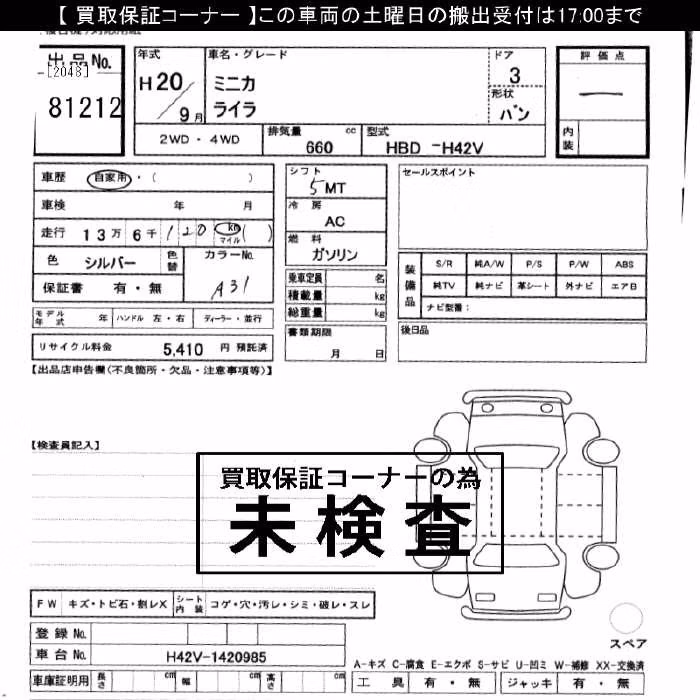 【 買取保証コーナー 】この車両の土曜日の搬出受付は17:00まで
出品No.
[2048]
81212
年式
H20
9月
車名・グレード
ミニカ
ライラ
ドア
3
形状
バン
評価点
内装
2WD ・ 4WD
排気量 660 cc
型式 HBD -H42V
車歴 自家用 ・ ( )
車検 年 月
走行 13万 6千 120 km マイル ( )
色 シルバー 色替 カラーNo.
保証書 有・無 A31
モデル年式 年 ハンドル 左・右 ディーラー・並行
リサイクル料金 5,410 円 預託済
シフト 5MT
冷房 AC
燃料 ガソリン
乗車定員 名
積載量 kg
総重量 kg
書類期限
月 日
セールスポイント
装備品 S/R 純A/W P/S P/W ABS
純TV 純ナビ 革シート 外ナビ エアB
ナビ型番：
後日品
【出品店申告欄(不良箇所・欠品・注意事項等)】
【検査員記入】
買取保証コーナーの為
未検査
FW キズ・トビ石・割レX シート内装 コゲ・穴・汚レ・シミ・破レ・スレ
登録No.
車台No. H42V-1420985
車庫証明用 長さ cm 幅 cm 高さ cm
スペア
A-キズ C-腐食 E-エクボ S-サビ U-凹ミ W-補修 XX-交換済
工具 有・無 ジャッキ 有・無